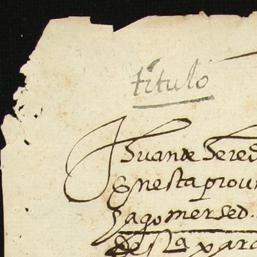 titulo
Juan de Here
En esta prouin
hago mersed.
de sta para